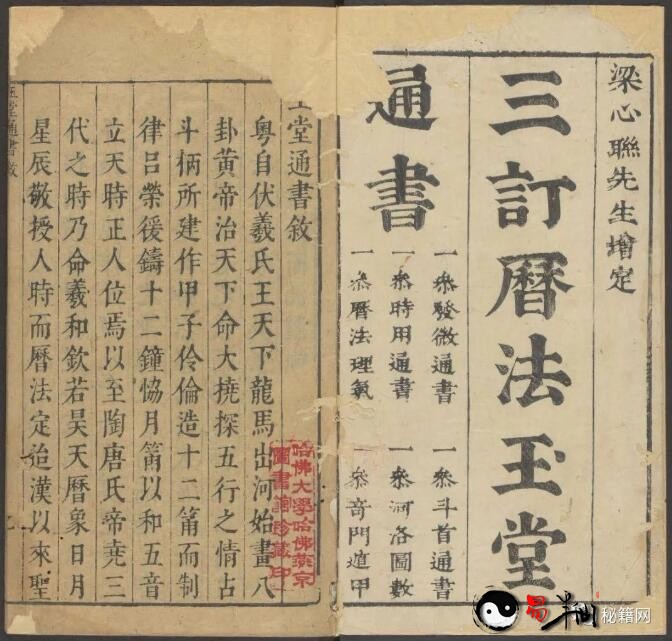 梁心聯先生增定
三訂曆法玉堂
通書
一叅發微通書
一叅斗首通書
一叅時用通書
一叅河洛圖數
一叅曆法理氣
一叅奇門遁甲
堂通書敘
粵自伏羲氏王天下龍馬出河始畫八
卦黃帝治天下命大撓探五行之情占
斗柄所建作甲子伶倫造十二筩而制
律呂榮援鑄十二鐘恊月筩以和五音
立天時正人位焉以至陶唐氏帝堯三
代之時乃命羲和欽若昊天曆象日月
星辰敬授人時而曆法定迨漢以來聖
玉堂通書敘
哈佛大學哈佛燕京
圖書館珍藏印
秘籍网